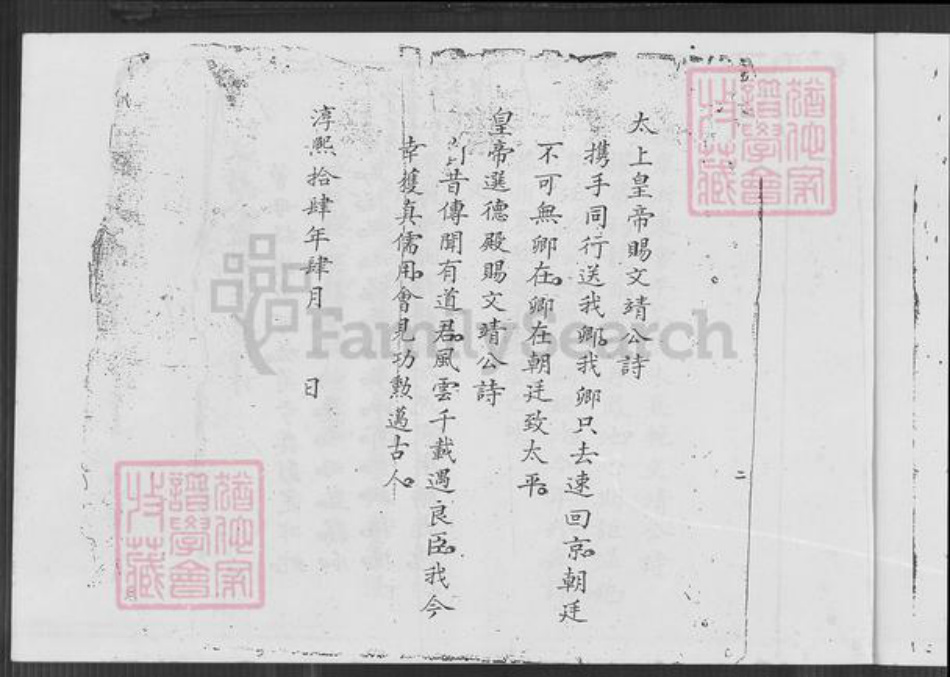 太上皇帝賜文靖公詩
携手同行送我卿。我卿只去速回京。朝廷
不可無卿在。卿在朝廷致太平。
皇帝選德殿賜文靖公詩
昔傳聞有道君。風雲千載遇良臣。我今
幸獲真儒用。會見功勲邁古人。
淳熙拾肆年肆月 日
二
FamilySearch